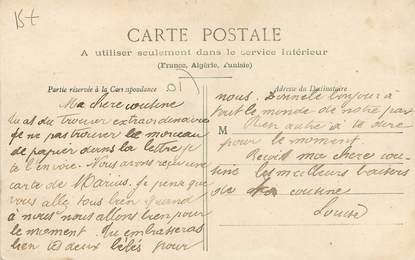 15+
CARTE POSTALE
A utiliser seulement dans le service intérieur
(France, Algérie, Tunisie)
Partie réservée à la Correspondance
Adresse du Destinataire
M
Ma chere cousine
Tu as du trouver extraordinaire
je ne pas trouver le morceau
de papier dans la lettre je
te l'envoie. Nous avons reçu une
carte de Marius. Je pense que
vous allez tous bien quand
à nous nous allons bien pour
le moment. Tu embrasseras
bien tes deux bébés pour
nous. Donne le bonjour à
tout le monde de notre par
Rien autre à te dire
pour le moment.
Reçoit ma chere cou-
sine les meilleurs baisers
de ta cousine
Louise